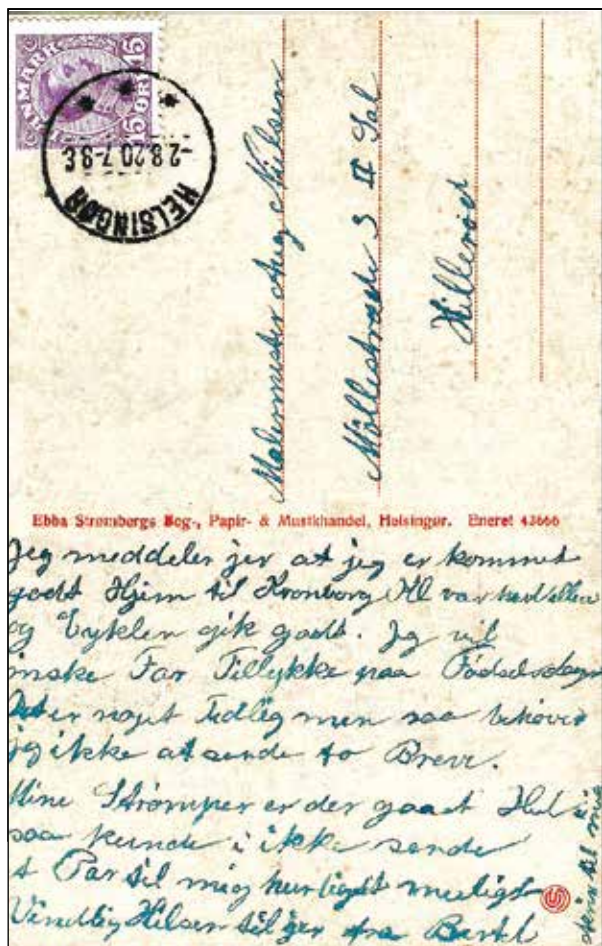 DANMARK
15 ØRE 15
HELSINGØR
-2.8.20.7-8 E
Malermester Aug Nielsen
Møllestræde 3 II Sal
Hillerød
Ebba Strømbergs Bog-, Papir- & Musikhandel, Helsingør. Eneret 43666
Jeg meddeler jer at jeg er kommet
godt Hjem til Kronborg Kl var
og Cyklen gik godt. Jeg vil
ønske Far Tillykke paa Fødselsdagen
Det er noget Tidlig men saa behøver
jeg ikke at sende to Breve.
Mine Strømper er der gaaet Hul i
saa kunde i ikke sende
et Par til mig hurtigst muligt
Venlig Hilsen til jer fra Bertel